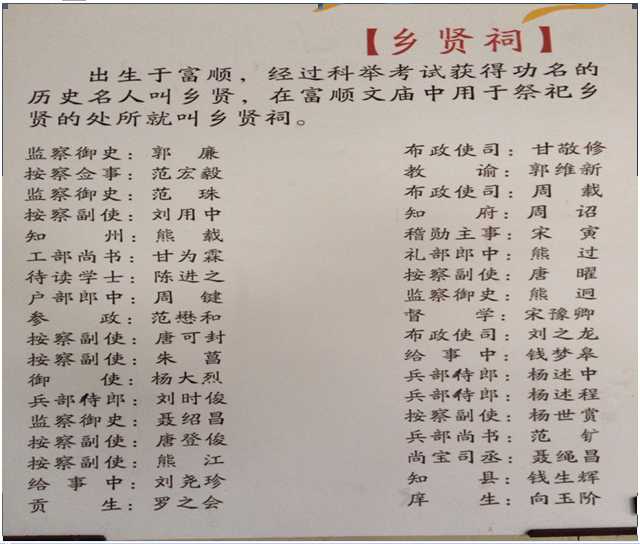 【乡贤祠】
出生于富顺，经过科举考试获得功名的
历史名人叫乡贤，在富顺文庙中用于祭祀乡
贤的处所就叫乡贤祠。
监察御史：郭 廉
按察佥事：范宏毅
监察御史：范 珠
按察副使：刘用中
知 州：熊 载
工部尚书：甘为霖
待读学士：陈进之
户部郎中：周 键
参 政：范懋和
按察副使：唐可封
按察副使：朱 菖
御 使：杨大烈
兵部侍郎：刘时俊
监察御史：聂绍昌
按察副使：唐登俊
按察副使：熊 江
给 事 中：刘尧珍
贡 生：罗之会
布政使司：甘敬修
教 谕：郭维新
布政使司：周 载
知 府：周 诏
稽勋主事：宋 寅
礼部郎中：熊 过
按察副使：唐 曜
监察御史：熊 迥
督 学：宋豫卿
布政使司：刘之龙
给 事 中：钱梦皋
兵部侍郎：杨述中
兵部侍郎：杨述程
按察副使：杨世赏
兵部尚书：范 矿
尚宝司丞：聂绳昌
知 县：钱生辉
庠 生：向玉阶